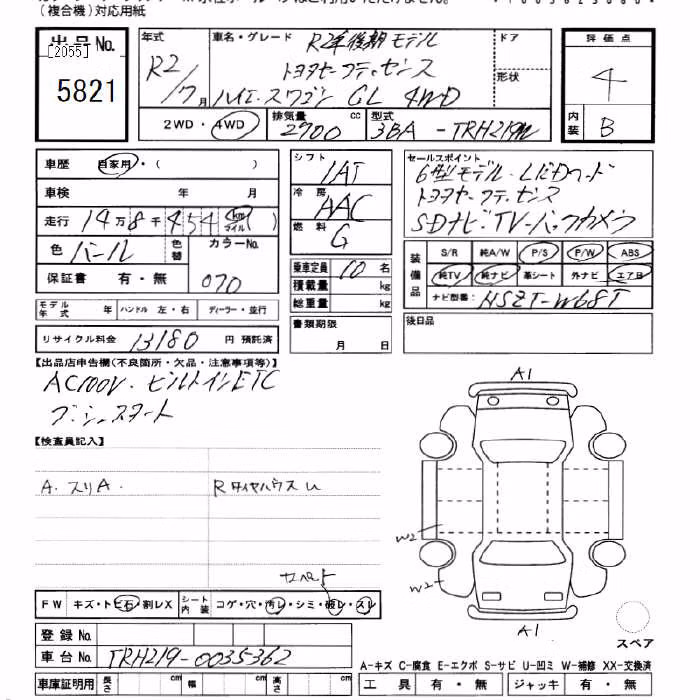 (複合機)対応用紙
出品No.
[2055]
5821
年式
R2/7月
車名・グレード
R2年後期モデル
トヨタセーフティセンス
ハイエースワゴン GL 4WD
ドア
形状
評価点
4
内装
B
2WD・4WD
排気量
2700
cc
型式
3BA-TRH219W
車歴
自家用・( )
車検 年 月
走行 14万8千454 km マイル ( )
色 パール
色替
カラーNo.
070
保証書 有・無
モデル年式 年
ハンドル 左・右
ディーラー・並行
リサイクル料金 13180 円 預託済
シフト
IAT
冷房
AAC
燃料
G
乗車定員 10 名
積載量 kg
総重量 kg
書類期限
月 日
セールスポイント
6型モデル・LEDヘッド
トヨタセーフティセンス
SDナビ・TV・バックカメラ
装備品
S/R 純A/W P/S P/W ABS
純TV 純ナビ 革シート 外ナビ エアB
ナビ型番 NSZT-W68T
後日品
【出品店申告欄(不良箇所・欠品・注意事項等)】
AC100V・ビルトインETC
プッシュスタート
【検査員記入】
A.スリA.
RタイヤハウスU
カーペット
FW キズ・トビ石・割レX
シート内装 コゲ・穴・汚レ・シミ・破レ・スレ
登録No.
車台No. TRH219-0035362
車庫証明用 長さ cm 幅 cm 高さ cm
A1
W2
W2
A1
スペア
A-キズ C-腐食 E-エクボ S-サビ U-凹ミ W-補修 XX-交換済
工具 有・無 ジャッキ 有・無